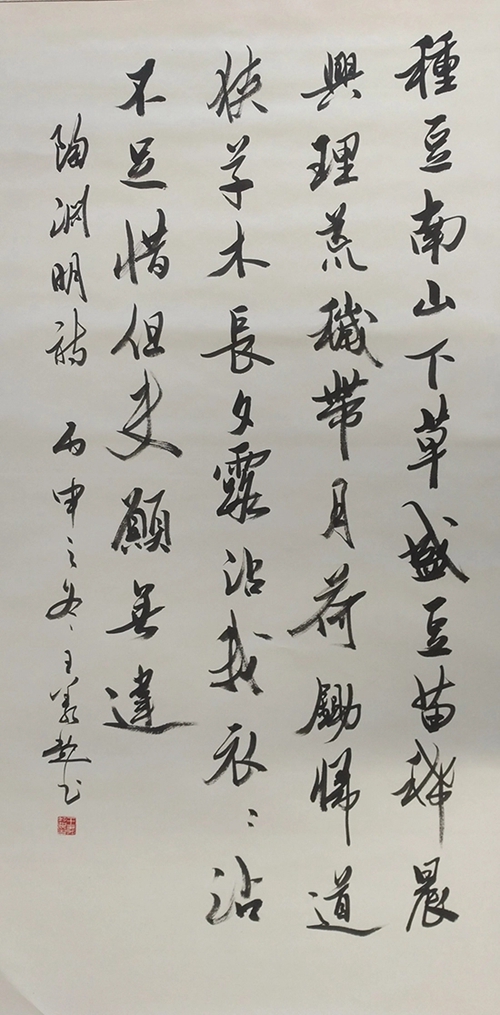 種豆南山下草盛豆苗稀晨
興理荒穢帶月荷鋤歸道
狹草木長夕露沾我衣〻沾
不足惜但使願無違
陶淵明詩 丙申之冬王義